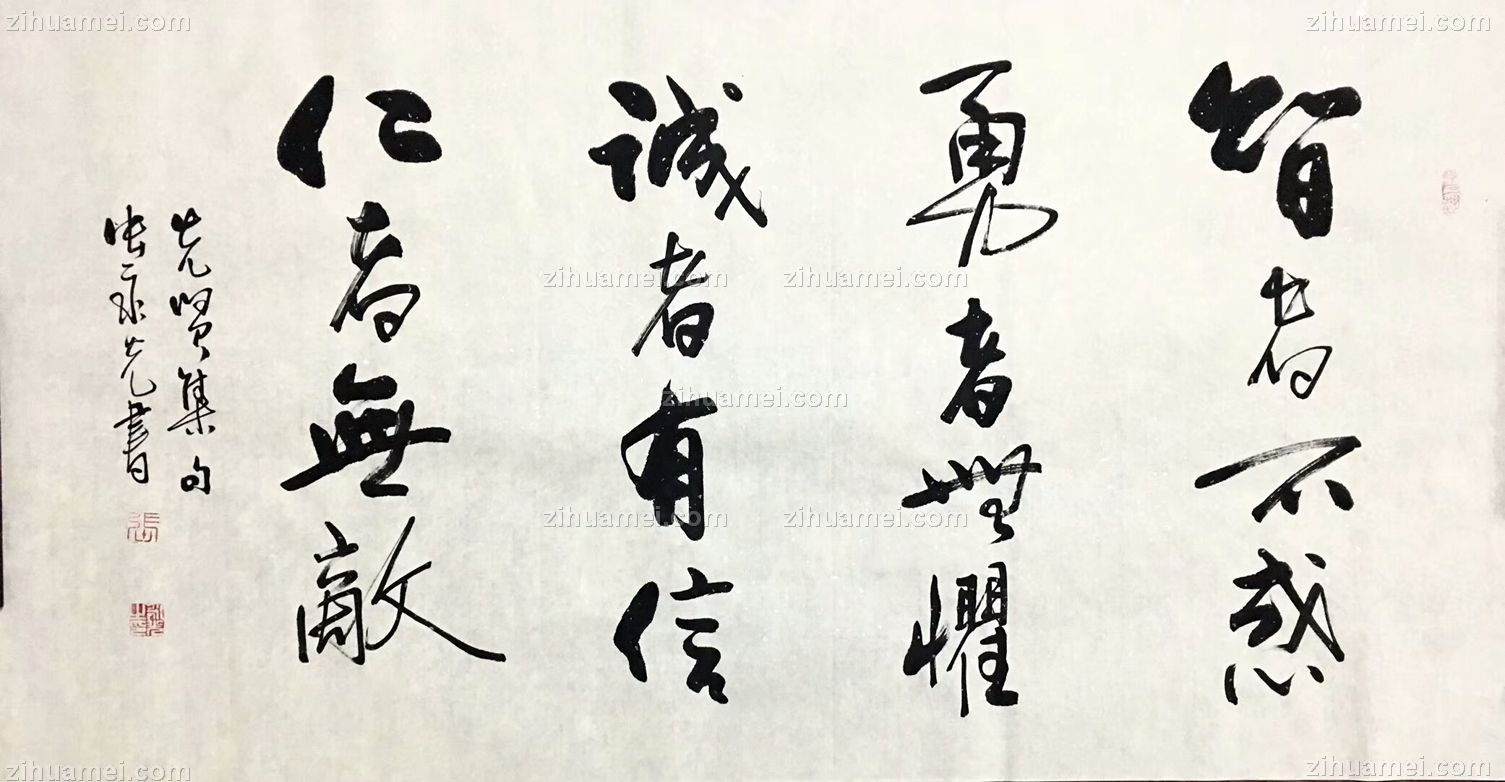 智者不惑
勇者無懼
誠者有信
仁者無敵
先賢集句
張永先書
張
zihuamei.com
zihuamei.com
zihuamei.com
zihuamei.com
zihuamei.com
zihuamei.com
zihuamei.com
zihuamei.com
zihuamei.com